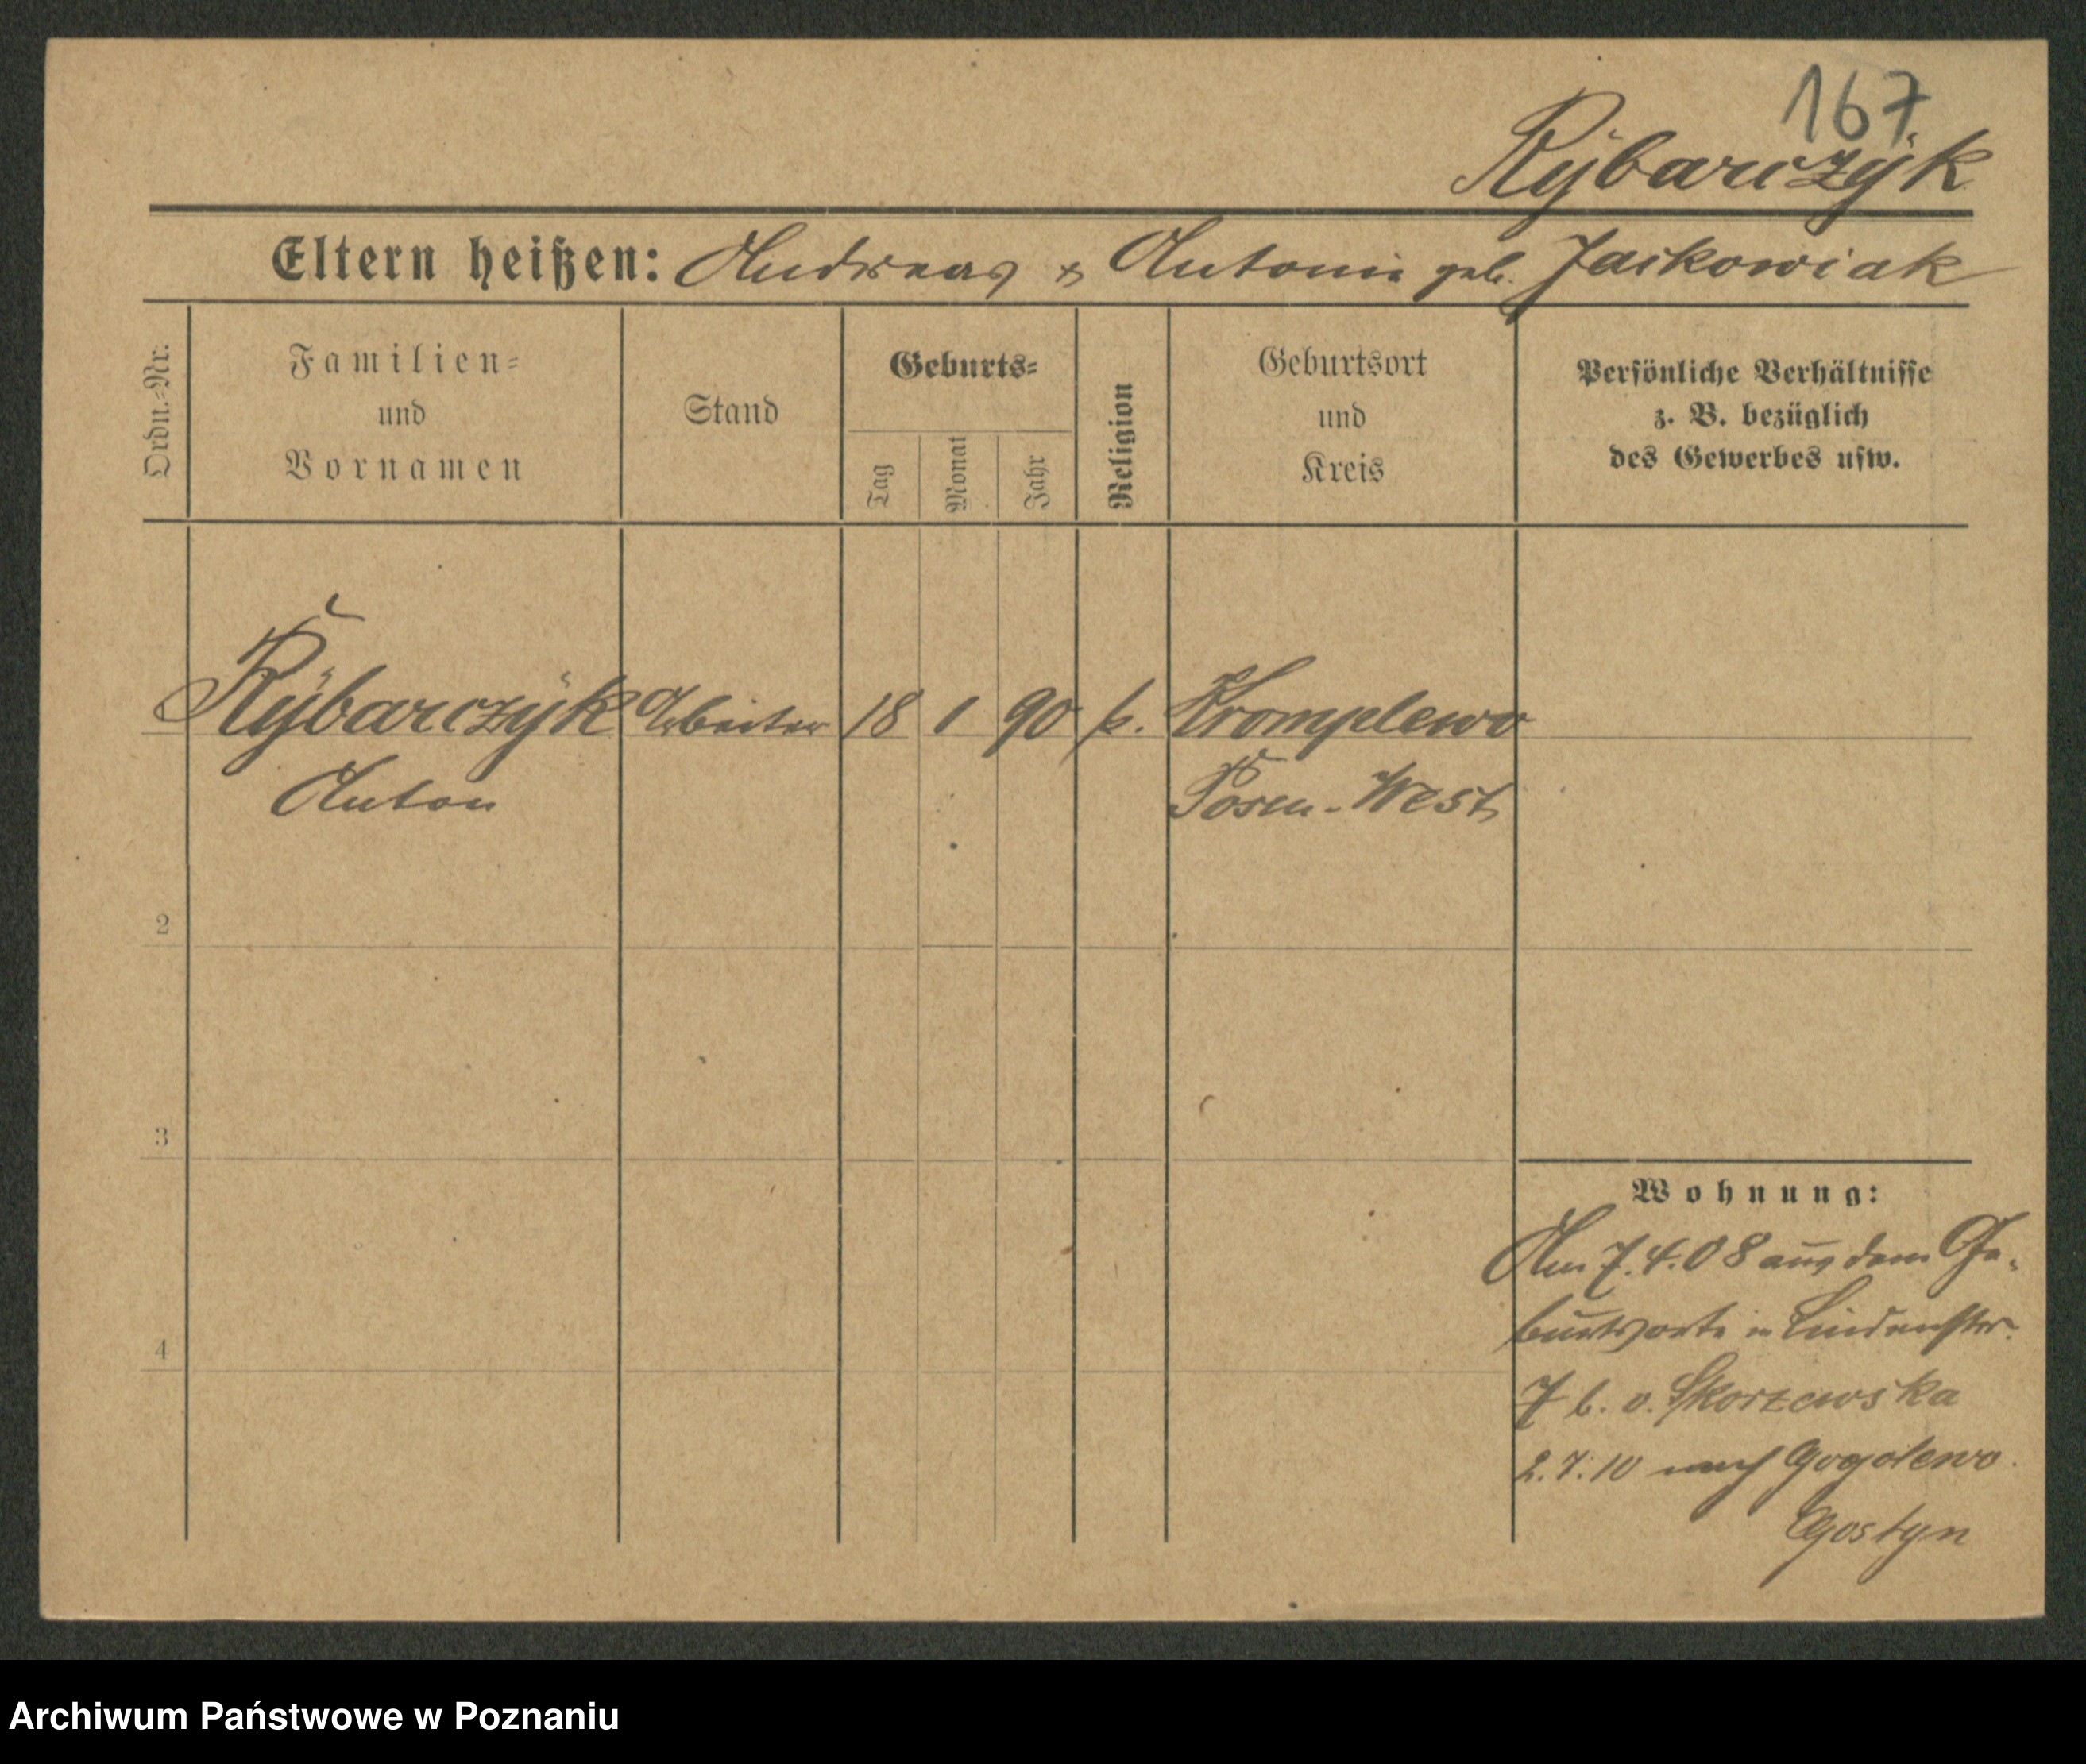 167
Rybarczyk
Eltern heißen: Andreas & Antonie geb. Jaskowiak
Ordn.-Nr.
Familien-
und
Vornamen
Stand
Geburts-
Tag
Monat
Jahr
Religion
Geburtsort
und
Kreis
Persönliche Verhältnisse
z. B. bezüglich
des Gewerbes usw.
Rybarczyk Arbeiter 18 1 90 k. Kromplewo
Anton Posen-West
2
3
4
Wohnung:
Am 7.4.08 aus dem Ge-
burtsorte in Lindenstr.
7 b. v. Skorzewska
2.7.10 nach Gogolewo.
Gostyn
Archiwum Państwowe w Poznaniu